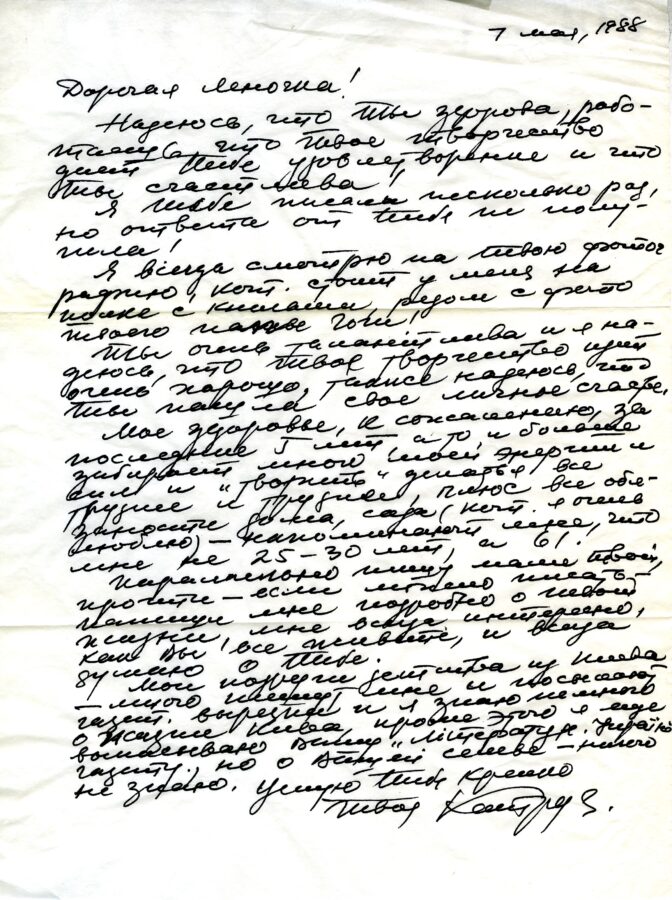 7 мая, 1988
Дорогая Леночка!
Надеюсь, что Ты здорова, рабо-
таешь, что Твое творчество
дает Тебе удовлетворение и что
Ты счастлива!
Я Тебе писала несколько раз,
но ответа от Тебя не полу-
чила!
Я всегда смотрю на Твою фотог
рафию, кот. стоит у меня на
полке с книгами, рядом с фото
твоего
Ты очень талантлива и я на-
деюсь, что Твое творчество идет
очень хорошо, также надеюсь, что
Ты нашла свое личное счастье.
Мое здоровье, к сожалению, за
последние 5 лет а то и больше
забирает много моей энергии и
сил и "творить" делать все
труднее и труднее, плюс все обя-
занности дома, сада (кот. я очень
люблю) – напоминают мне, что
мне не 25–30 лет, а 61!
Параллельно пишу маме Твоей,
прости – если можно писать –
напиши мне подробно о
жизни, мне всегда интересно,
как Вы все живете, и всегда
думаю о Тебе.
Мои подруги детства из Киева
– много пишут мне и посылают
газет. вырезки и я знаю немного
о жизни Киева, кроме этого я еще
выписываю Вашу "Літературн. Україну"
газету. но о Вашей семье – ничего
не знаю. Целую Тебя крепко
Твоя